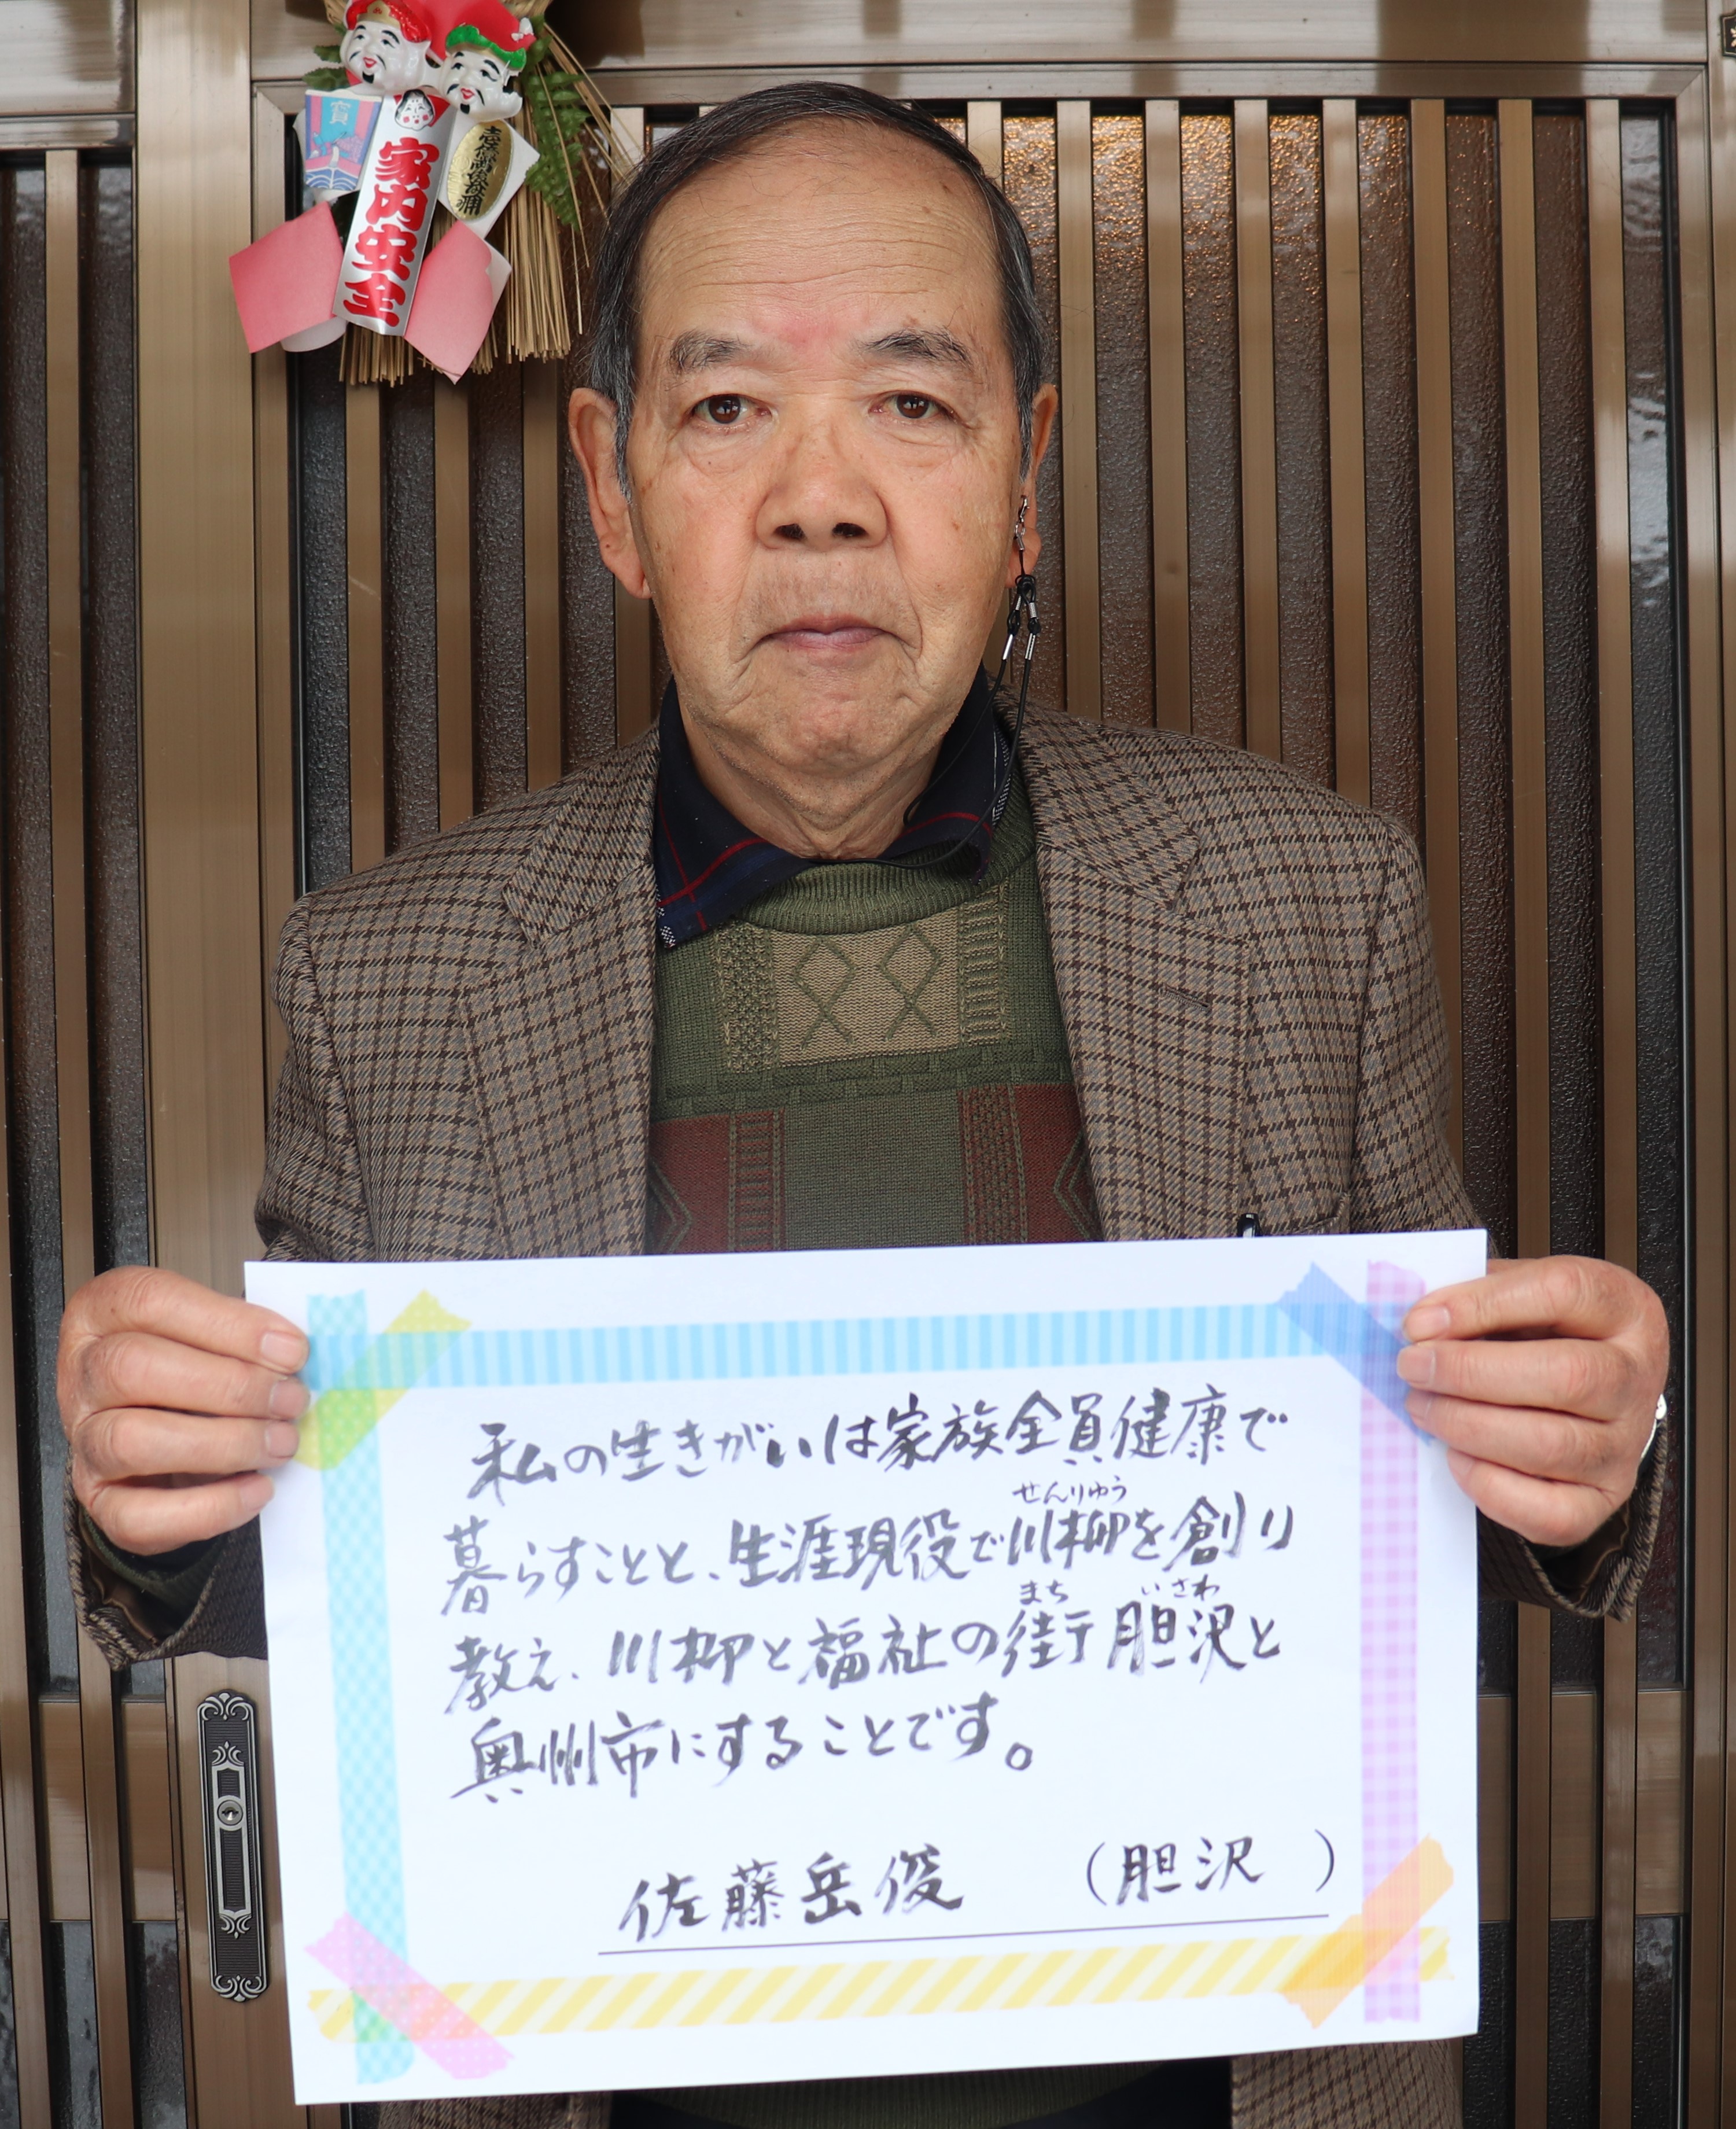 寳
家内安全
私の生きがいは家族全員健康で
せんりゅう
暮らすことと、生涯現役で川柳を創り
まち いさわ
教え、川柳と福祉の街 胆沢と
奥州市にすることです。
佐藤岳俊 (胆沢 )